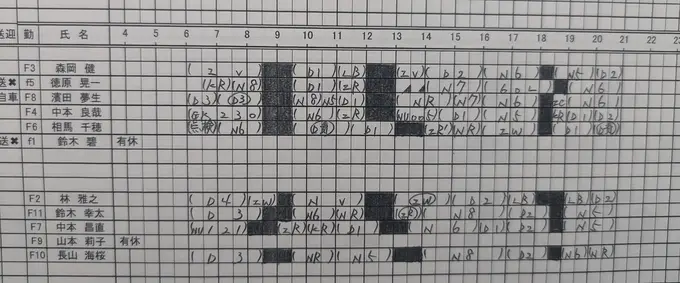 送迎 勤 氏 名 4 5 6 7 8 9 10 11 12 13 14 15 16 17 18 19 20 21 22 23
F3 森岡 健 ( Z V ) ( D1 ) ( LB ) ( ZV ) ( D2 ) ( N6 ) ( N5 ) ( D2 )
送✖ f5 徳原 晃一 ( KR ) ( N8 ) ( D1 ) ( ZR ) ( N7 ) ( 60L ) ( N6 )
自車 F8 濱田 夢生 ( D3 ) ( D3 ) ( N8 ) ( N5 ) ( D1 ) ( NR ) ( N7 ) ( N6 ) ( N6 )
F4 中本 良哉 230 ) ( N6 ) ( ZR ) ( D1 ) ( N5 ) ( D1 ) ( D2 )
F6 相馬 千穂 (点検) ( N6 ) ( D1 ) ( ZR ) ( NR ) ( ZW ) ( D1 )
送✖ f1 鈴木 碧 有休
F2 林 雅之 ( D4 ) ( ZW ) ( N V ) ( ZW ) ( D2 ) ( LB ) ( LB ) ( D2 )
F11 鈴木 幸太 ( D3 ) ( N6 ) ( NR ) ( ZR ) ( N8 ) ( D2 ) ( N5 )
F7 中本 昌直 121 ) ( ZR ) ( KR ) ( D1 ) ( N6 ) ( D1 ) ( D2 ) ( N5 )
F9 山本 莉子 有休
F10 長山 海桜 ( D3 ) ( NR ) ( N5 ) ( N8 ) ( D2 ) ( N6 ) ( NR )